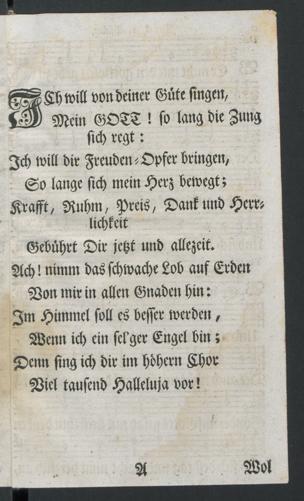 ICh will von deiner Güte singen,
Mein GOTT! so lang die Zung
sich regt:
Ich will dir Freuden-Opfer bringen,
So lange sich mein Herz bewegt;
Krafft, Ruhm, Preis, Dank und Herr-
lichkeit
Gebührt Dir jetzt und allezeit.
Ach! nimm das schwache Lob auf Erden
Von mir in allen Gnaden hin:
Im Himmel soll es besser werden,
Wenn ich ein sel'ger Engel bin;
Denn sing ich dir im höhern Chor
Viel tausend Halleluja vor!
A Wol